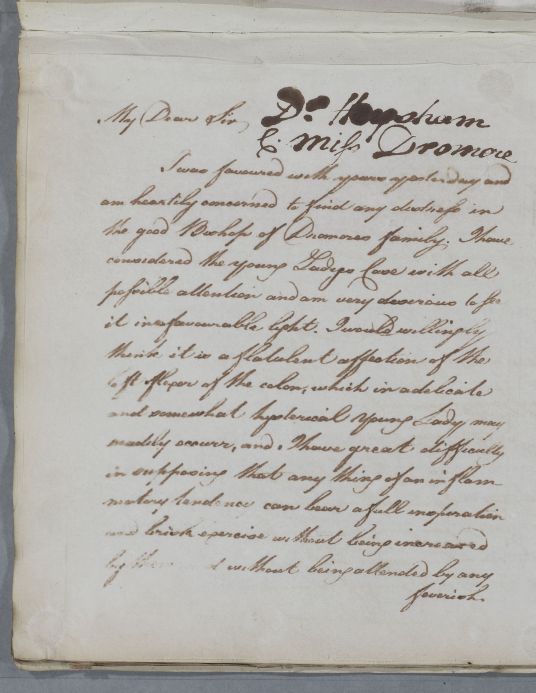 Dr Heysham
C. Miss Dromore
My Dear Sir,
I was favoured with yours yesterday and
am heartily concerned to find any distress in
the good Bishop of Dromores family. I have
considered the young Ladys Case with all
possible attention and am very desirous to see
it in a favourable light. I would willingly
think it is a flatulent affection of the
left flexor of the colon, which in a delicate
and somewhat hysterical young Lady may
readily occurr, and I have great difficulty
in supposing that any thing of an inflam
matory tendency can bear a full inspiration
and brisk exercise without being increased
by them and without being attended by any
feverish